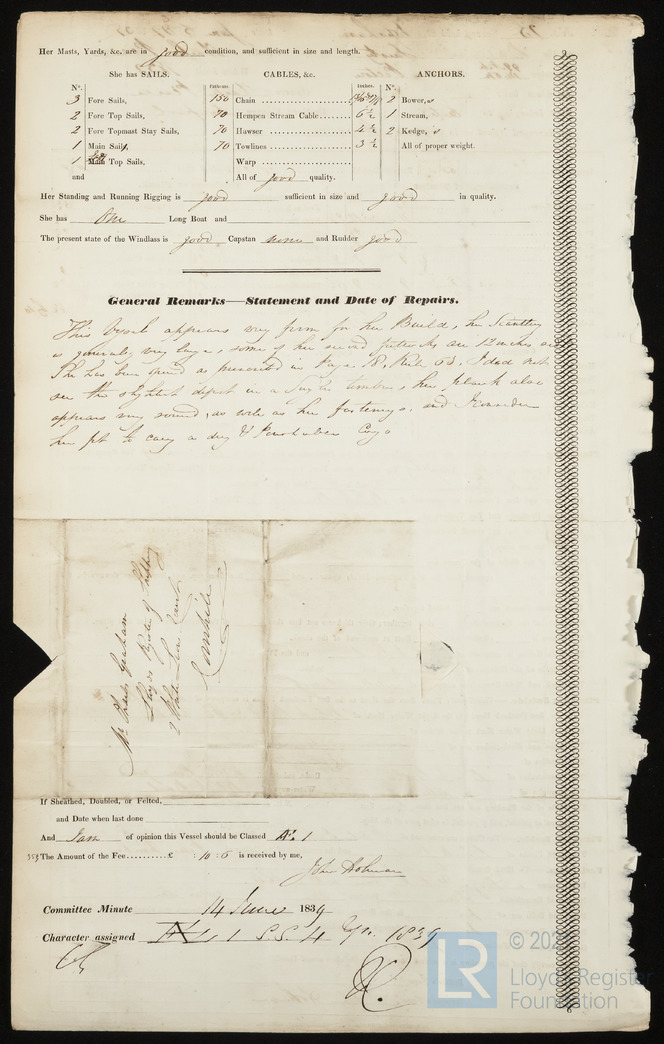 Her Masts, Yards, &c. are in good condition, and sufficient in size and length.
She has SAILS.
CABLES, &c.
ANCHORS.
Nº.
3 Fore Sails,
2 Fore Top Sails,
2 Fore Topmast Stay Sails,
1 Main Sails,
1 Main Top Sails,
and
Fathoms. Inches.
150 Chain
70 Hempen Stream Cable 6 ½
70 Hawser 4 ½
70 Towlines 3 ½
Warp
All of good quality.
Nº.
2 Bower,
1 Stream,
2 Kedge,
All of proper weight.
Her Standing and Running Rigging is good sufficient in size and good in quality.
She has One Long Boat and
The present state of the Windlass is good Capstan none and Rudder good
General Remarks—Statement and Date of Repairs.
This Vessel appears very firm for her Build, her Scantling
is generally very large, some of her second futtocks are 12 inches
She has been opened as prescribed in Page 18, Rule 53. I did not
see the slightest defect in a single timber, her plank also
appears very sound, as well as her fastenings. and I consider
her fit to carry a dry & Perishable Cargo
Mr Charles Graham
Lloyds Register of Shipping
2 White Lion Court
Cornhill
If Sheathed, Doubled, or Felted,
and Date when last done
And I am of opinion this Vessel should be Classed A 1
353 The Amount of the Fee..........£ : 10 : 6 is received by me,
John
Committee Minute 14 June 1839
Character assigned 1 S.S. 4 1839
LR
Lloyd's Register
Foundation